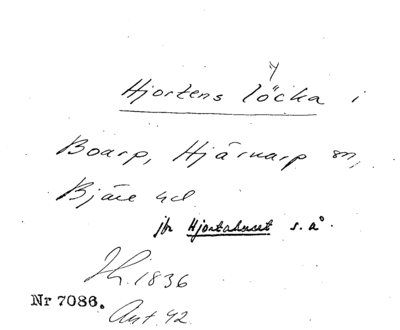 Hjortens löcka i
Boarp, Hjärnarp sn,
Bjäre hd
jfr Hjortahuset s. å.
Jh. 1836
Nr 7086.
Avt 42